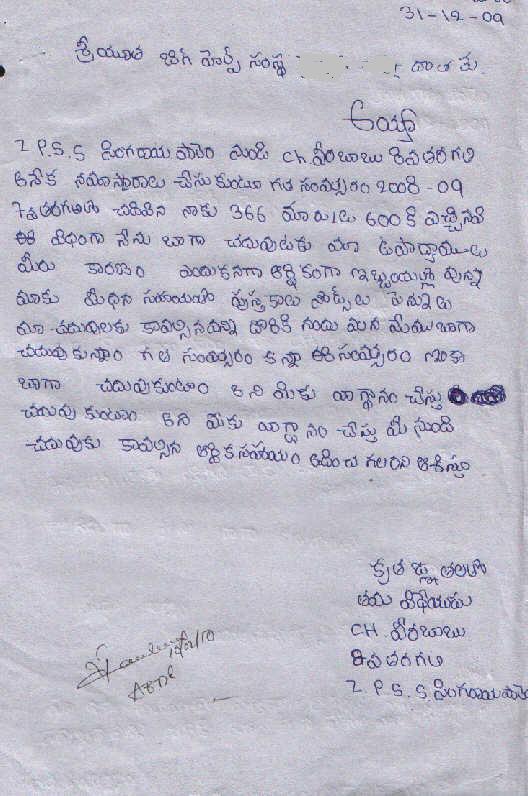 31-12-09
శ్రీయుత బిగ్ హెల్ప్ సంస్థ దాతకు
అయ్యా
Z.P.S.S సింగరాయపాలెం నుండి ch.వీరబాబు 8వతరగతి
అనేక నమస్కారాలు చేసుకుంటూ గత సంవత్సరం 2008-09
7వతరగతిలో చదివిన నాకు 366 మార్కులు 600కి వచ్చినవి
ఈ విధంగా నేను బాగా చదువుటకు మా ఉపాద్యాయులు
మీరు కారణం ఎందుకనగా ఆర్దికంగా ఇబ్బందుల్లో వున్న
మాకు మీరు సహయం పుస్తకాలు నోట్స్‌లు పెన్నులు
మా చదువులకు కావల్సినవన్ని దొరికి నందు వలన మేము బాగా
చదువుకున్నాం గత సంవత్సరం కన్నా ఈ సంవత్సరం ఇంకా
బాగా చదువుకుంటాం అని మీకు వాగ్దానం చేస్తు
చదువు కుంటాం అని మీకు వాగ్దానం చేస్తు మీ నుండి
చదువుకు కావల్సిన ఆర్దిక సహయం అందించ గలరని ఆశిస్తూ
కృతజ్ఞతలతో
తమ విధేయుడు
CH వీరబాబు
8వతరగతి
Z.P.S.S.సింగరాయపాలెం